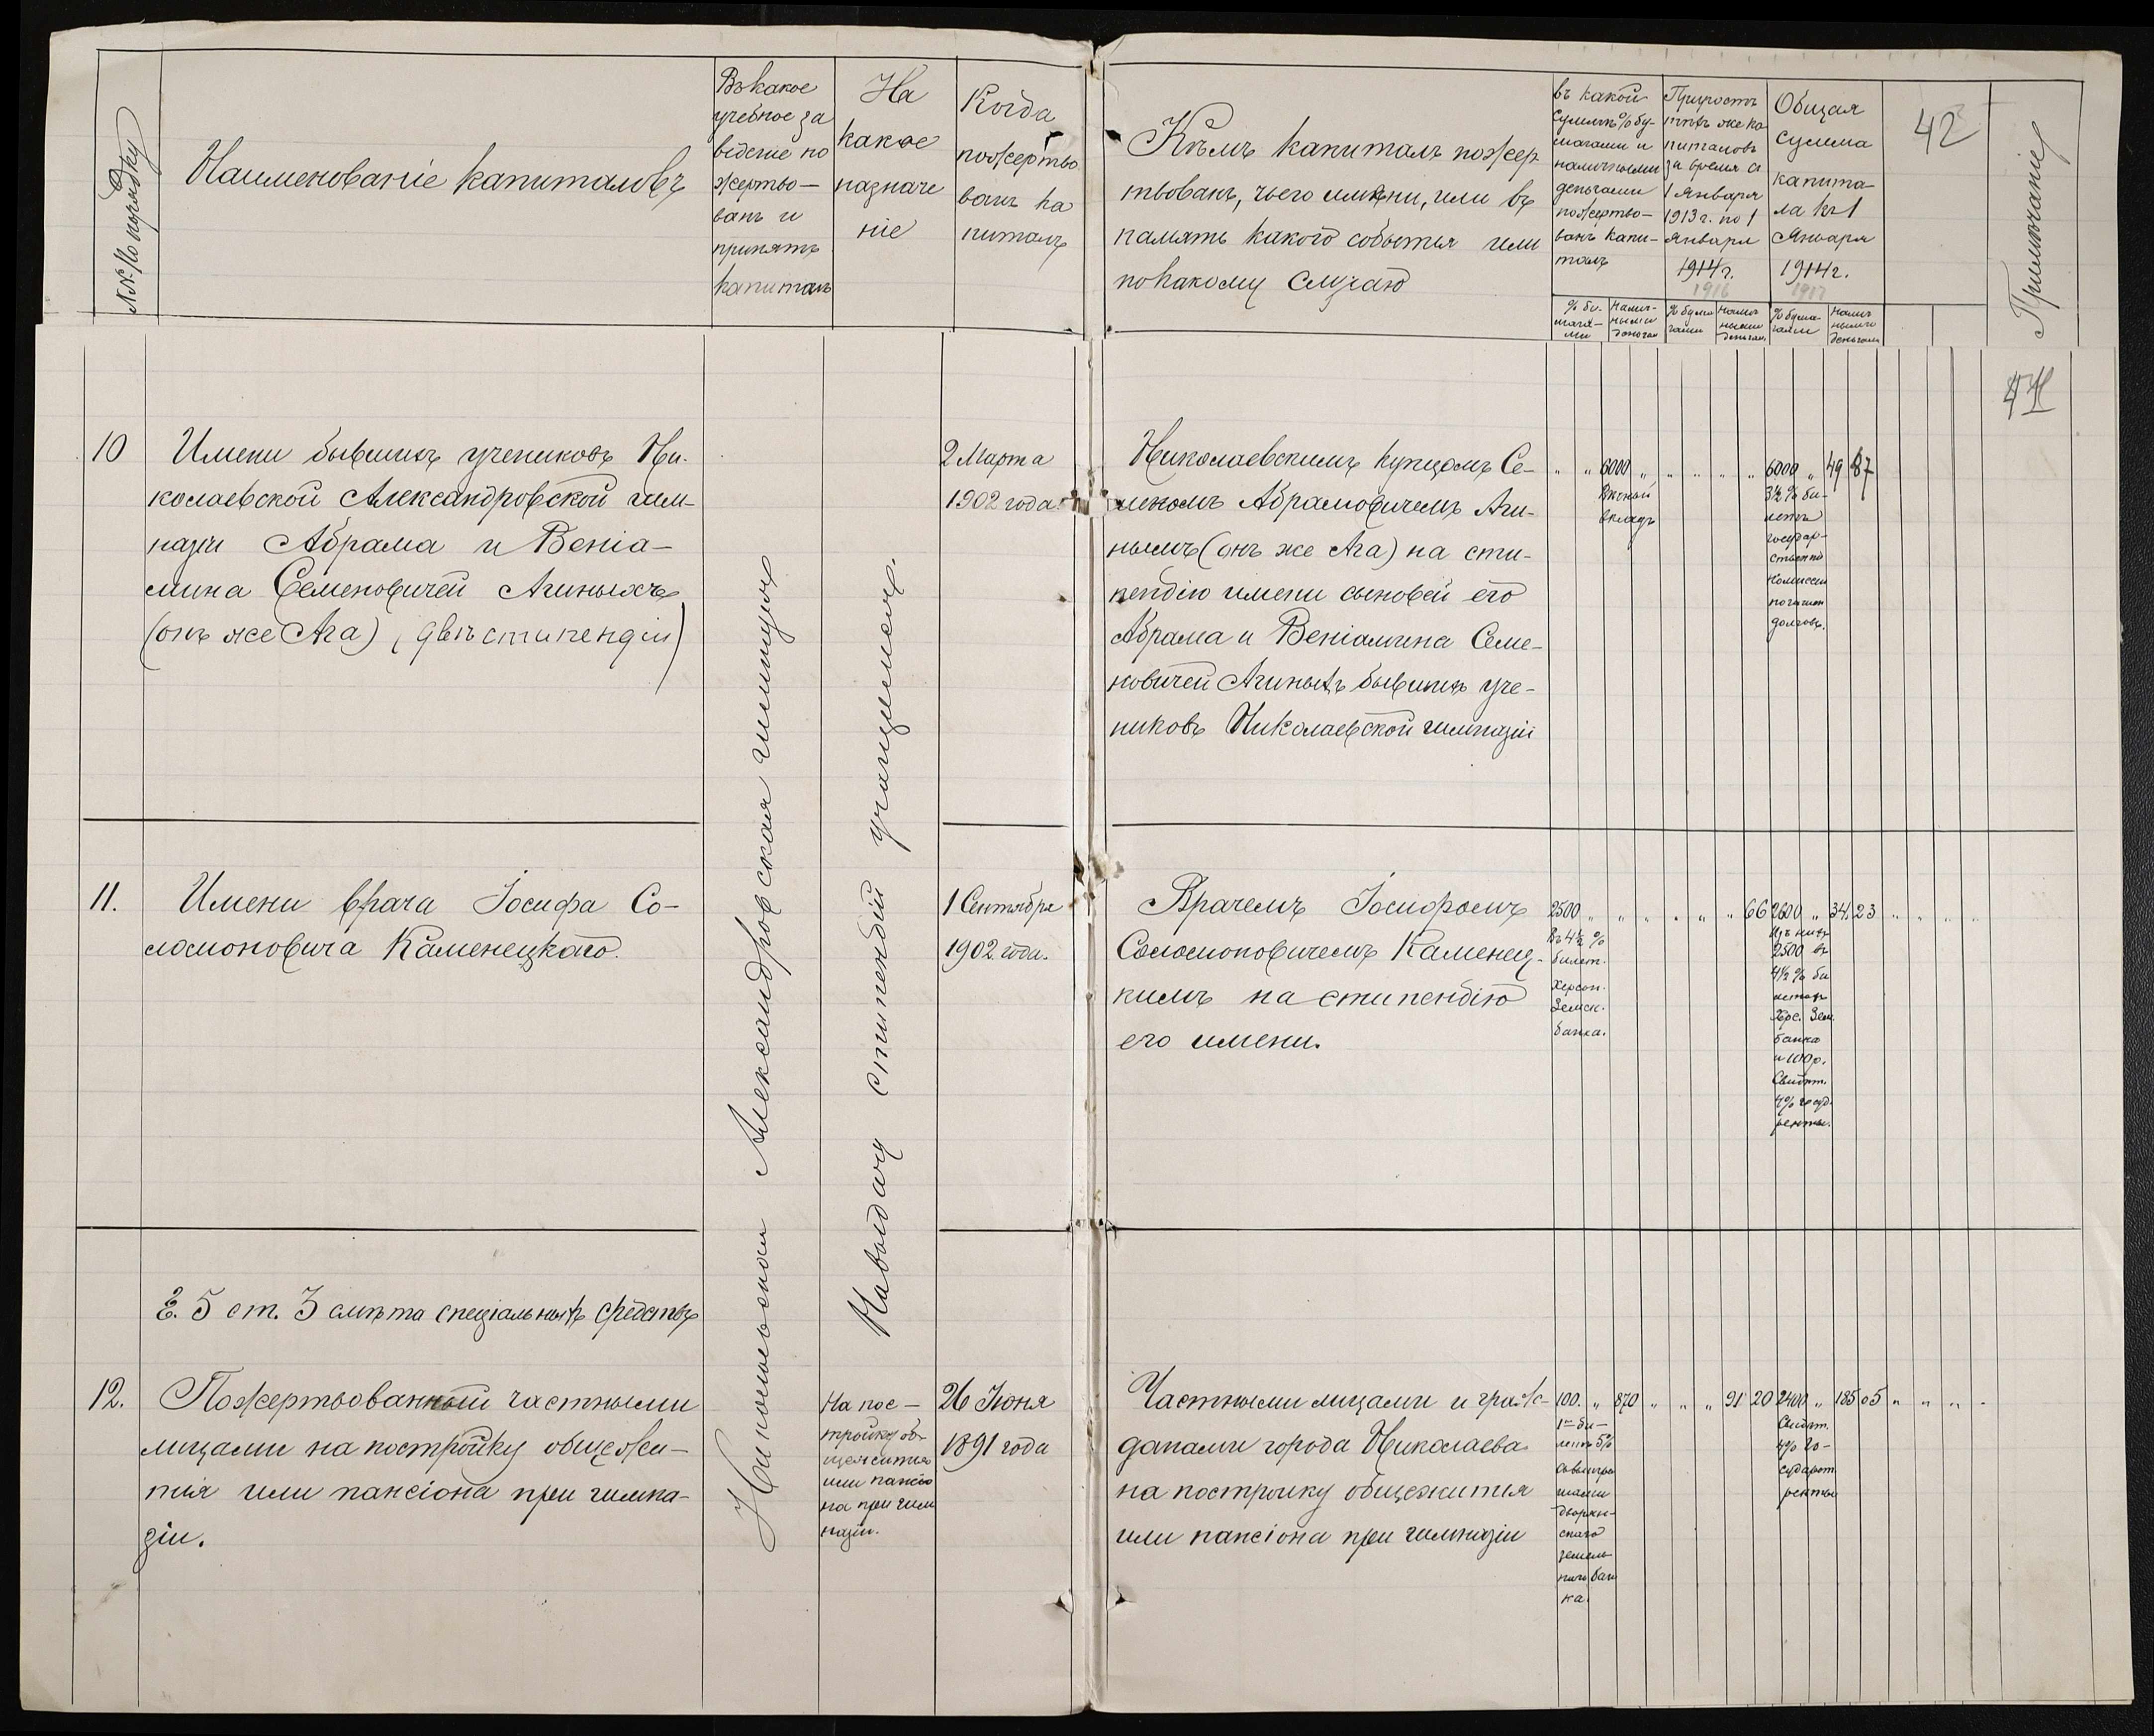 №№ по порядку
Наименованіе капиталовъ
Въ какое
учебное за
веденіе по
жертво—
ванъ и
принятъ
капиталъ
На
какое
назначе
ніе
Когда
пожертво
ванъ ка
питалъ
Кѣмъ капиталъ пожер
твованъ, чьего имени, или въ
память какого событія или
по какому случаю
въ какой
суммѣ % бу-
магами и
наличными
деньгами
пожертво-
ванъ капи-
талъ
% бу-
мага-
ми
Налич-
ными
деньгам
Приростъ
тѣхъ же ка
питаловъ
за время съ
1 Января
1913 г. по 1
Января
1914 г.
1916
% бума
гами
Налич
ными
деньгам.
Общая
сумма
капита-
ла къ 1
Января
1914 г.
1917
% бума-
гами
Налич
ными
деньгами
42
Примѣчаніе
10
Имени бывшихъ учениковъ Ни-
колаевской Александровской гим-
назіи Абрама и Веніа-
мина Семеновичей Агиныхъ
(онъ же Ага) (двѣ стипендіи)
Николаевская Александровская гимназія
На выдачу стипендій учащимся.
2 Марта
1902 года.
Николаевскимъ купцомъ Се-
меномъ Абрамовичемъ Аги-
нымъ (онъ же Ага) на сти-
пендію имени сыновей его
Абрама и Веніамина Семе-
новичей Агиныхъ бывшихъ уче-
никовъ Николаевской гимназіи
" " 6000 " " " " " 6000 " 49 87
Вѣчный
вкладъ
3½ % би-
летъ
государ-
ственно
Комиссіи
погашен
долговъ.
11.
Имени врача Іосифа Со-
ломоновича Каменецкаго.
1 Сентября
1902 года.
Врачемъ Іосифомъ
Соломоновичемъ Каменец-
кимъ на стипендію
его имени.
2500 " " " " " " 66 2600 " 34. 23 " " " "
Въ 4½ %
билет.
Херсон.
Земск.
банка.
Изъ нихъ
2500 въ
4½ % би
летахъ
Херс. Зем.
банка
и 100 р.
Свидѣт.
4% госуд.
ренты.
§. 5 ст. 3 смѣта спеціальныхъ средствъ
12.
Пожертвованный частными
лицами на постройку общежи-
тія или пансіона при гимна-
зіи.
На пос—
тройку об-
щежитія
или пансіо
на при гим
назіи.
26 Іюня
1891 года
Частными лицами и граж-
данами города Николаева
на постройку общежитія
или пансіона при гимназіи
100. " 870 " " " 91 20 2400 " 185 05 " " " "
1нъ би-
летъ 5%
съ выигры
шами
дворян-
скаго
земель
наго бан
ка.
Свидѣт.
4% го-
сударст.
ренты